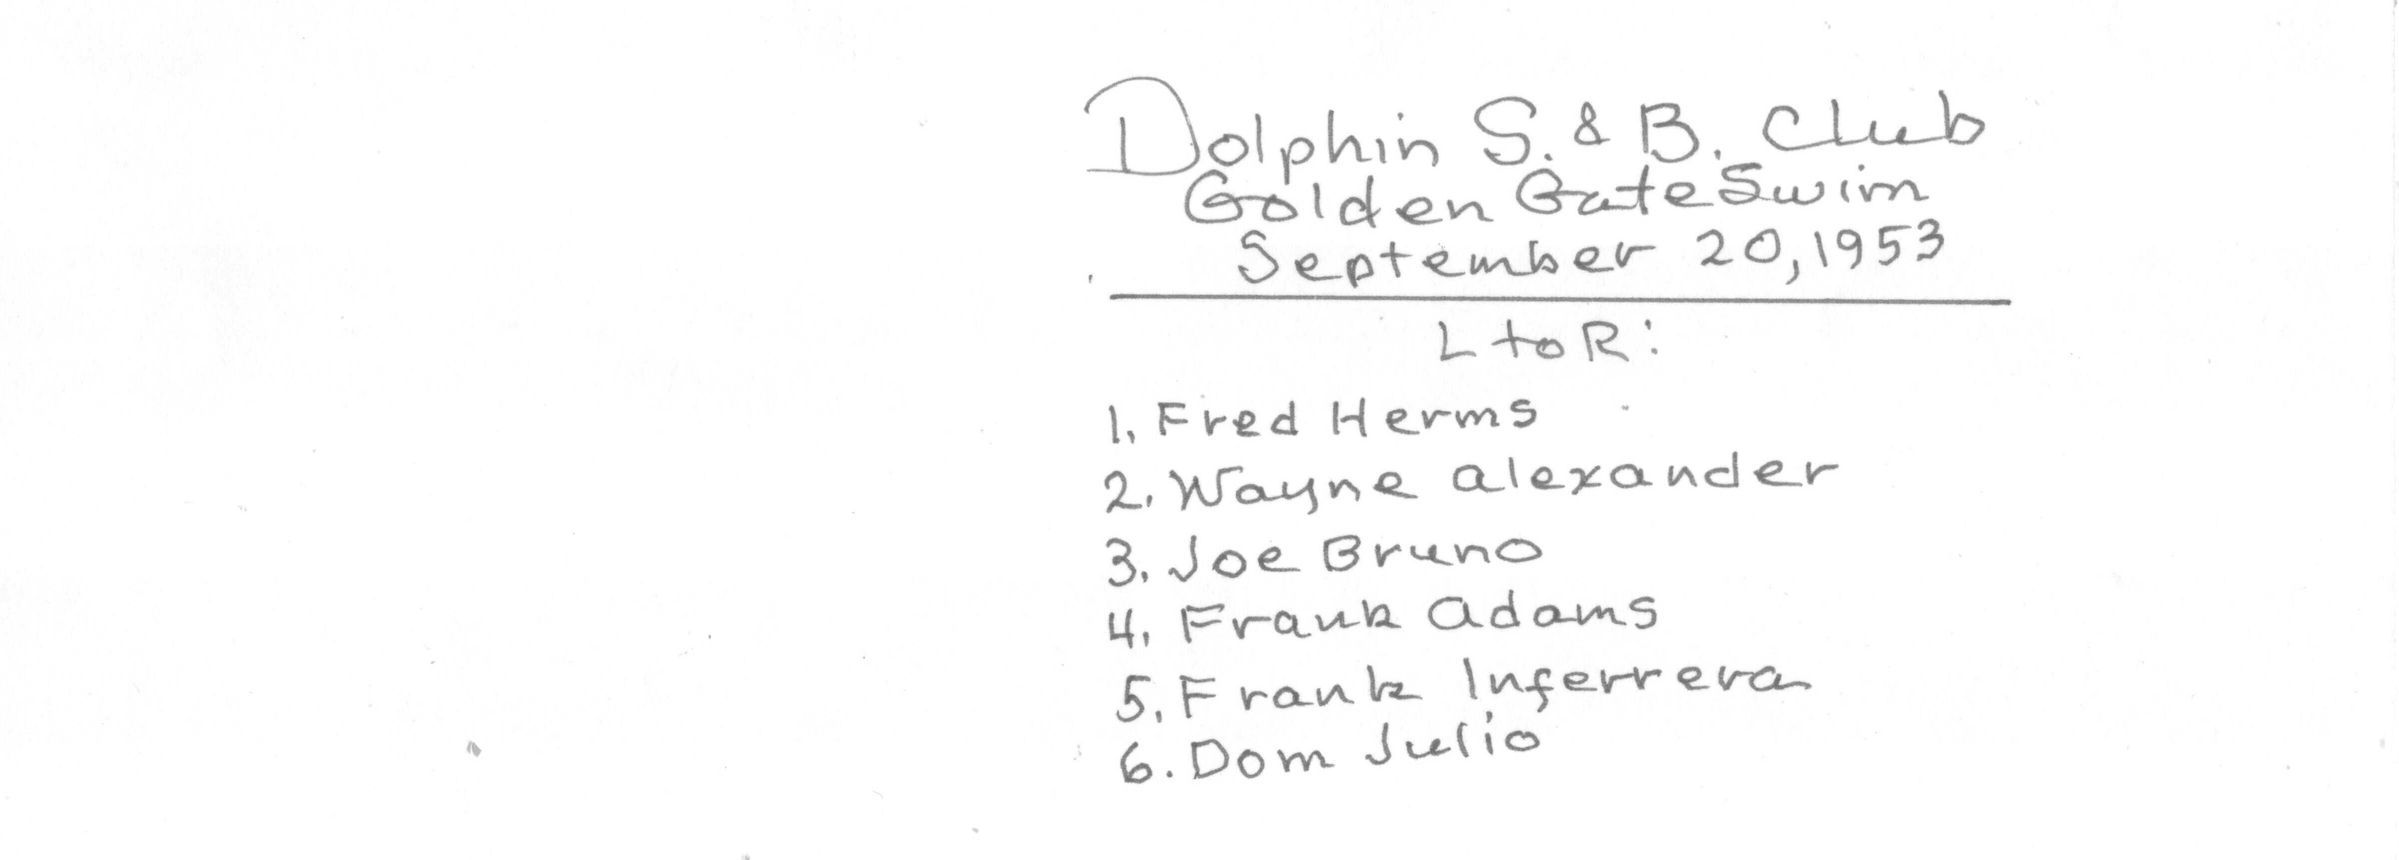 Dolphin S. & B. Club
Golden Gate Swim
September 20, 1953
L to R:
1. Fred Herms
2. Wayne Alexander
3. Joe Bruno
4. Frank Adams
5. Frank Inferrera
6. Dom Julio